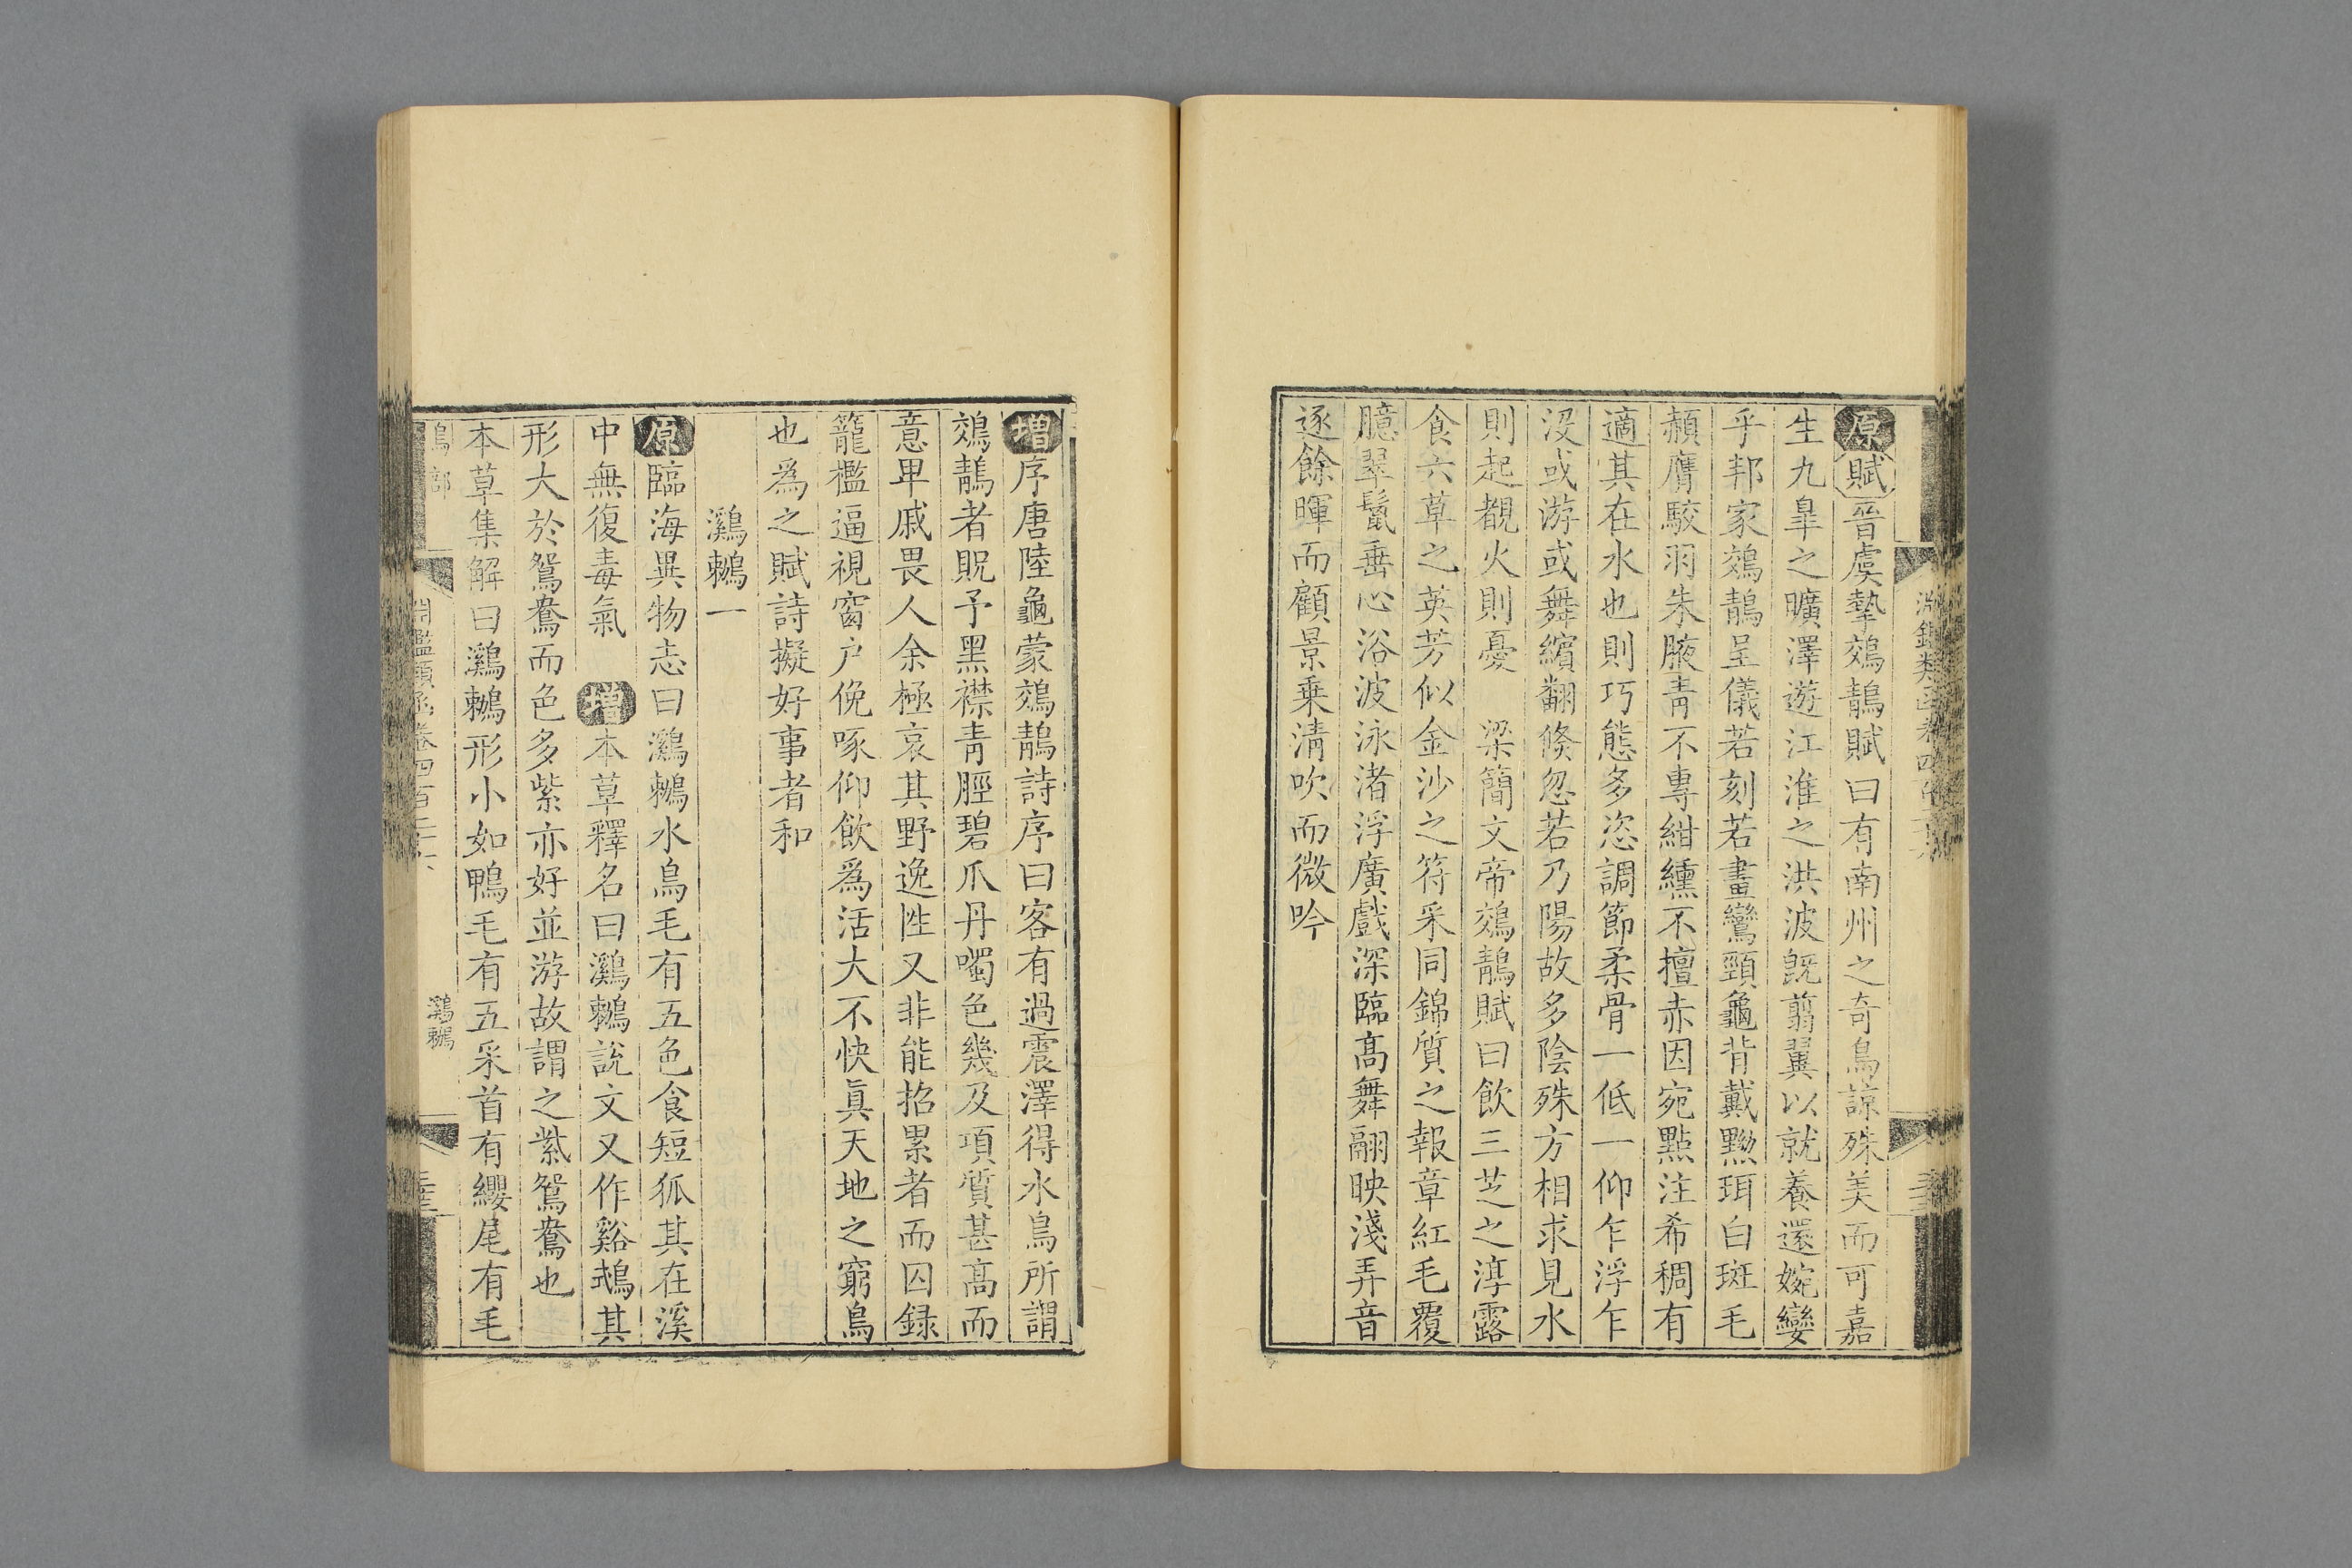 原賦晉虞摯鵁鶄賦曰有南州之奇鳥諒殊美而可嘉
生九臯之曠澤遊江淮之洪波旣翦翼以就養還婉孌
乎邦家鵁鶄呈儀若刻若畫鸞頸龜背戴黝珥白斑毛
頳膺駮羽朱腋青不專紺纁不擅赤因宛點注希稠有
適其在水也則巧態多恣調節柔骨一低一仰乍浮乍
没或游或舞繽翻倏忽若乃陽故多陰殊方相求見水
則起覩火則憂　梁簡文帝鵁鶄賦曰飲三芝之淳露
食六草之英芳似金沙之符采同錦質之報章紅毛覆
臆翠鬛垂心浴波泳渚浮廣戲深臨高舞翮映淺弄音
逐餘暉而顧景乗清吹而微吟
增序唐陸龜蒙鵁鶄詩序曰客有過震澤得水鳥所謂
鵁鶄者貺予黑襟青脛碧爪丹噣色幾及項質甚高而
意卑戚畏人余極哀其野逸性又非能招累者而囚録
籠檻逼視窗户俛啄仰飲爲活大不快眞天地之窮鳥
也爲之賦詩擬好事者和
鸂鶒一
原臨海異物志曰鸂鶒水鳥毛有五色食短狐其在溪
中無復毒氣　增本草釋名曰鸂鶒說文又作谿鵡其
形大於鴛鴦而色多紫亦好並游故謂之紫鴛鴦也
本草集解曰鸂鶒形小如鴨毛有五采首有纓尾有毛
鳥部
淵鑑類函卷四百二十六
鸂鶒